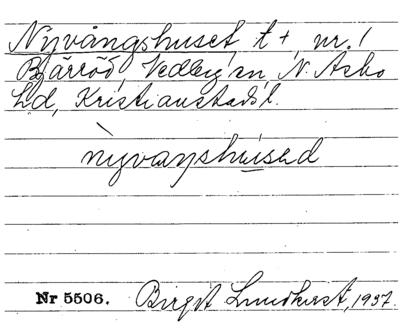 Nyvångshuset, t+, nr. 1
Bjärröd, Vedby sn, N. Åsbo
hd, Kristianstads l.
nỳvaŋshúsəd
Nr 5506. Birgit Lundkvist, 1937.